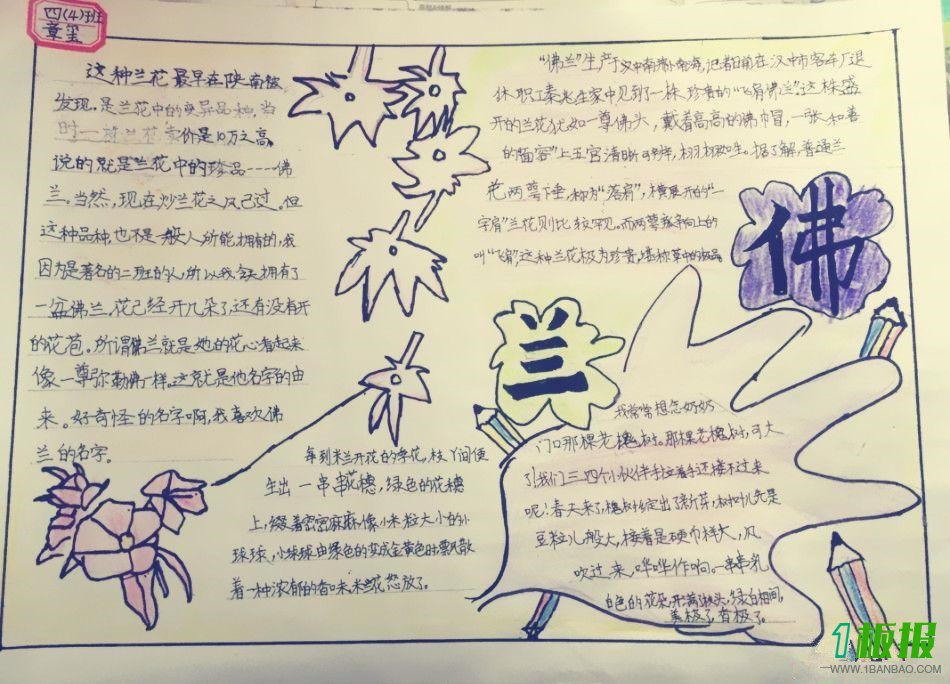 四(4)班
章玺
这种兰花最早在陕南被
发现.是兰花中的变异品种,当
时一株兰花卖价是10万之高,
说的就是兰花中的珍品----佛
兰.当然,现在炒兰花之风已过.但
这种品种也不是一般人所能拥有的,我
因为是著名的二班的人,所以我家拥有了
一盆佛兰,花已经开几朵了,还有没有开
的花苞。所谓佛兰就是她的花心看起来
像一尊弥勒佛一样。这就是他名字的由
来。好奇怪的名字啊,我喜欢佛
兰的名字。
"佛兰"生产
记者日前在汉中市客车厂退
休职工秦兆生家中见到了一株珍贵的"飞肩佛兰"这株盛
开的兰花犹如一尊佛头,戴着高高的佛巾冒,一张和善
的面容"上五官清晰可辨,栩栩如生.据了解,普通兰
花两萼下垂,称为"落肩",横展开的"一
字肩"兰花则比较罕见。而两萼
向上的
叫"飞肩"这种兰花极为珍贵,堪称
佛
兰
每到米兰开花的季花,枝丫间便
生出一串串花穗,绿色的花穗
上,缀着密密麻麻,像小米粒大小的小
球球,小球球由绿色的变成金黄色时飘散
着一种浓郁的香味,米兰花怒放了。
我常常想念奶奶
门口那棵老槐树。那棵老槐树,可大
了!我们三四个小伙伴手拉着手还搂不过来
呢!春天来了,槐树绽出了新芽,树叶儿先是
豆粒儿般大,接着是硬币样大,风
吹过来,哗哗作响。一串串乳
白色的花朵,开满了枝头,绿白相间,
美极了,香极了。
1板报
WWW.1BANBAO.COM